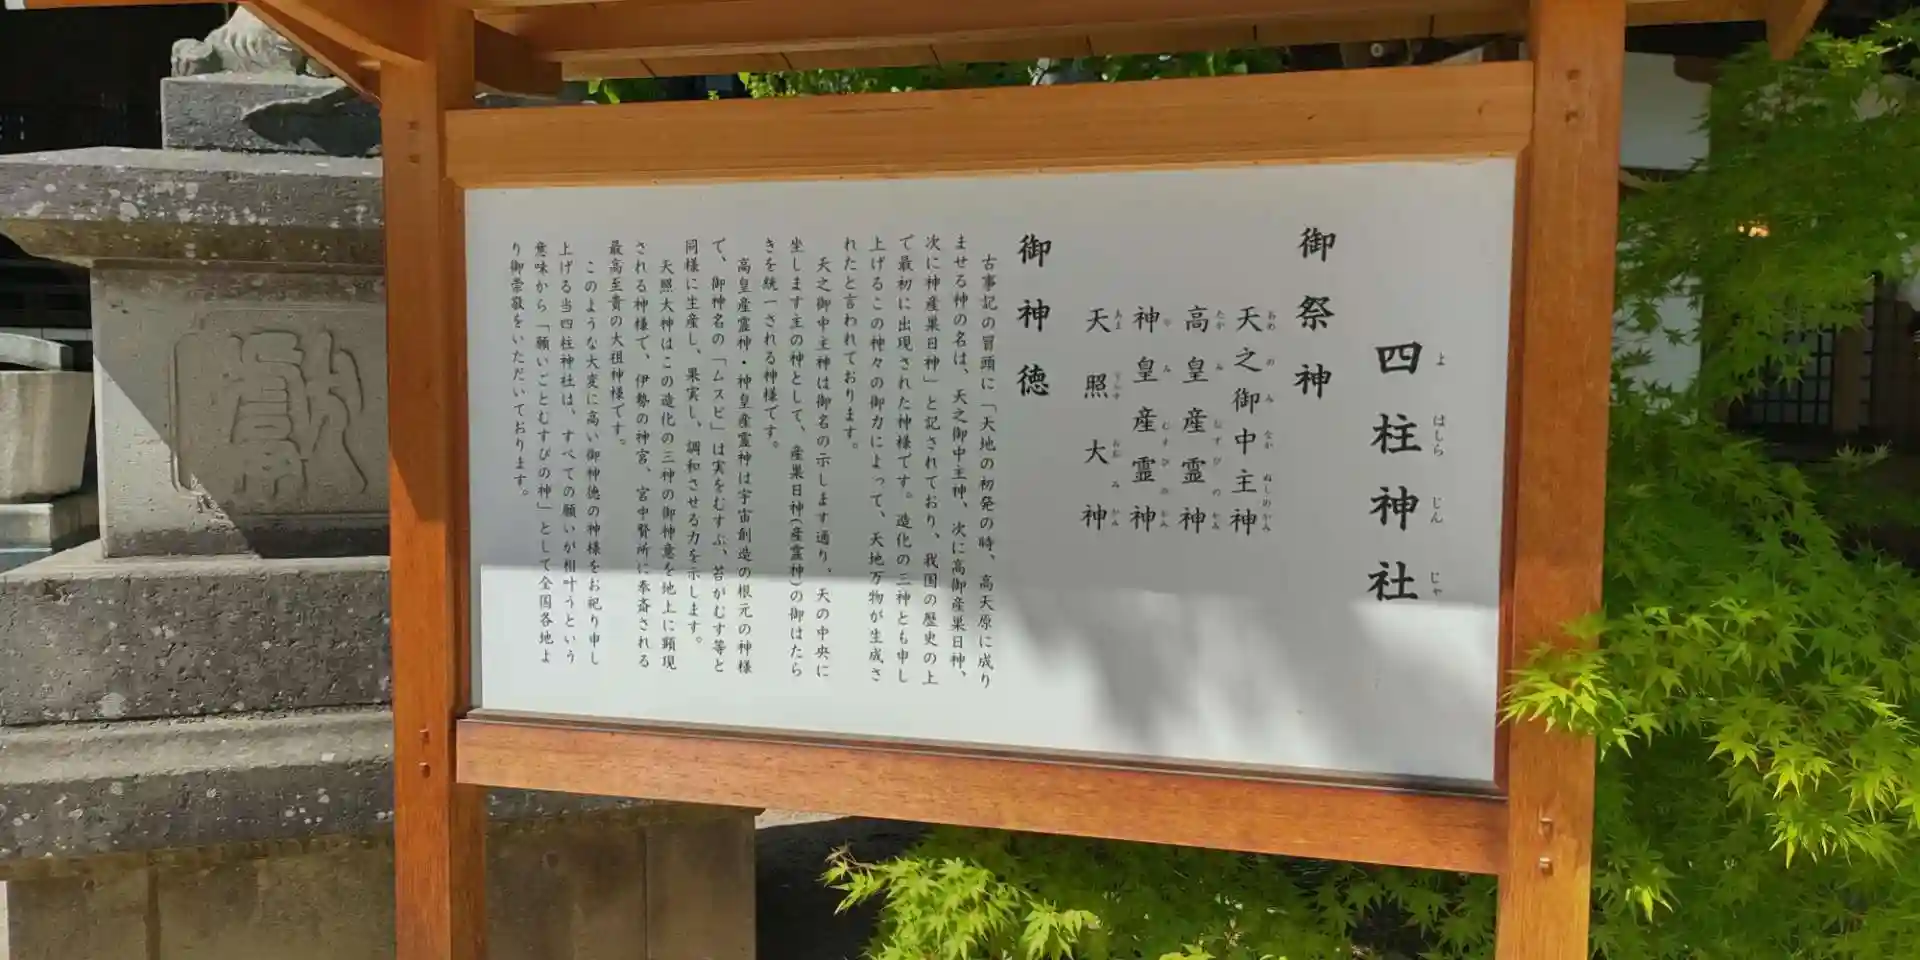 四柱神社
よ はしら じん じゃ
御祭神
天之御中主神
あめ の み なか ぬしのかみ
高皇産霊神
たか み むすび の かみ
神皇産霊神
かみ むすび のかみ
天照大神
あま てらす おお み かみ
御神徳
古事記の冒頭に「天地の初発の時、高天原に成り
ませる神の名は、天之御中主神、次に高御産巣日神、
次に神産巣日神」と記されており、我国の歴史の上
で最初に出現された神様です。造化の三神とも申し
上げるこの神々の御力によって、天地万物が生成さ
れたと言われております。
天之御中主神は御名の示します通り、天の中央に
坐します主の神として、産巣日神(産霊神)の御はたら
きを統一される神様です。
高皇産霊神・神皇産霊神は宇宙創造の根元の神様
で、御神名の「ムスビ」は実をむすぶ、苔がむす等と
同様に生産し、果実し、調和させる力を示します。
天照大神はこの造化の三神の御神意を地上に顕現
される神様で、伊勢の神宮、宮中賢所に奉斎される
最高至貴の大祖神様です。
このような大変に高い御神徳の神様をお祀り申し
上げる当四柱神社は、すべての願いが相叶うという
意味から「願いごとむすびの神」として全国各地よ
り御崇敬をいただいております。
献